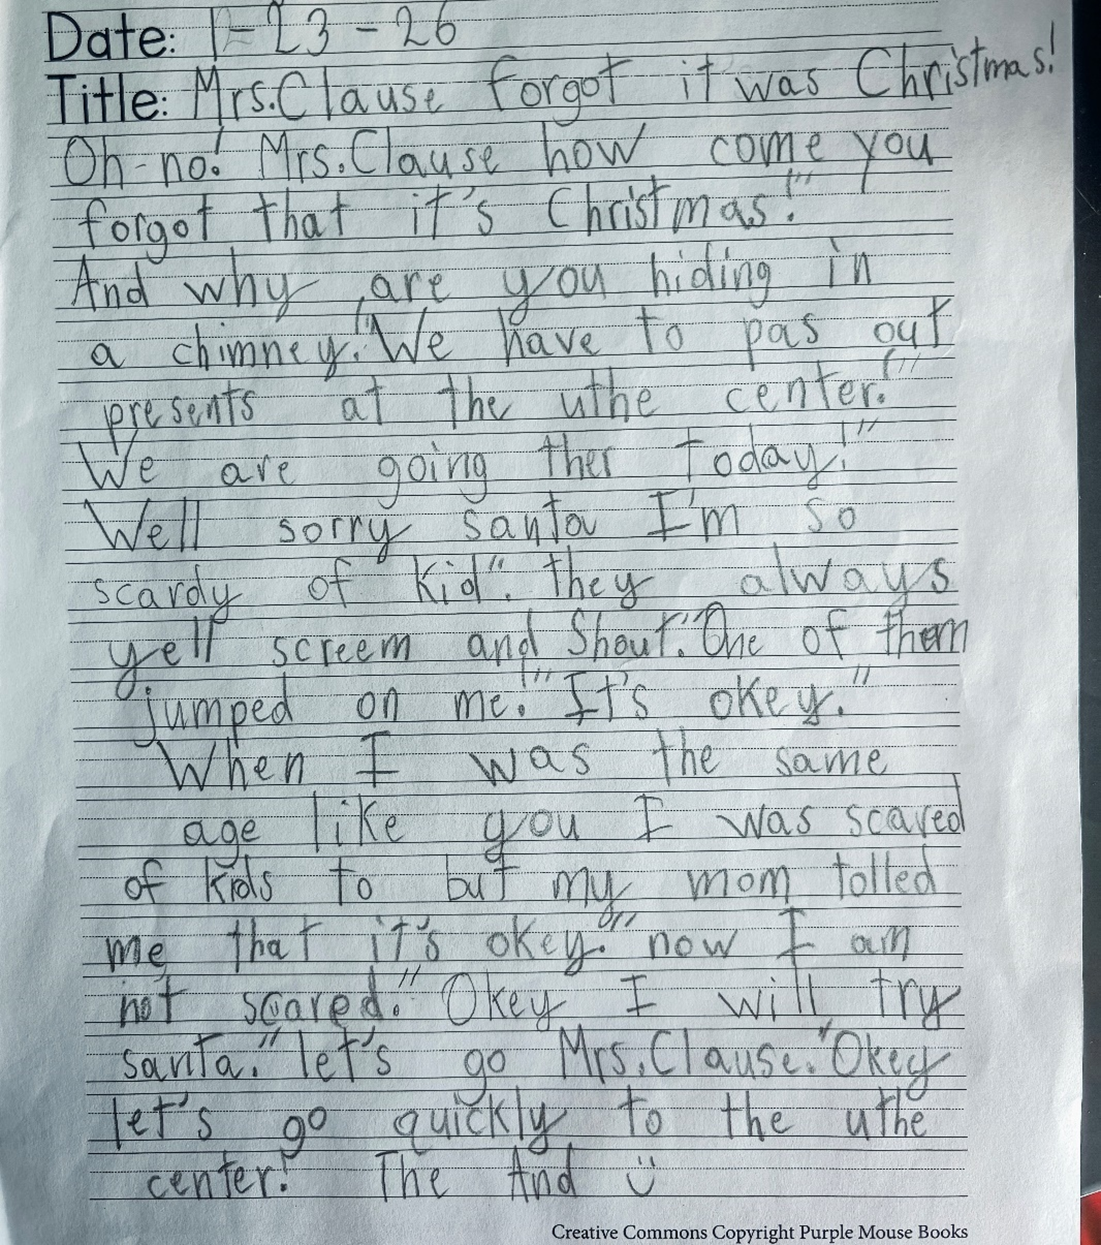 Date: 1-23-26
Title: Mrs.Clause forgot it was Christmas!
Oh-no! Mrs.Clause how come you
forgot that it's Christmas!"
And why are you hiding in
a chimney. "We have to pas out
presents at the uthe center!"
We are going ther today!"
Well sorry santa I'm so
scardy of kid". they always
yell screem and Shout. "One of them
jumped on me!" It's okey."
When I was the same
age like you I was scared
of kids to but my mom tolled
me that it's okey." now I am
not scared." Okey I will try
santa." let's go Mrs.Clause. "Okey
let's go quickly to the uthe
center! The And ü
Creative Commons Copyright Purple Mouse Books